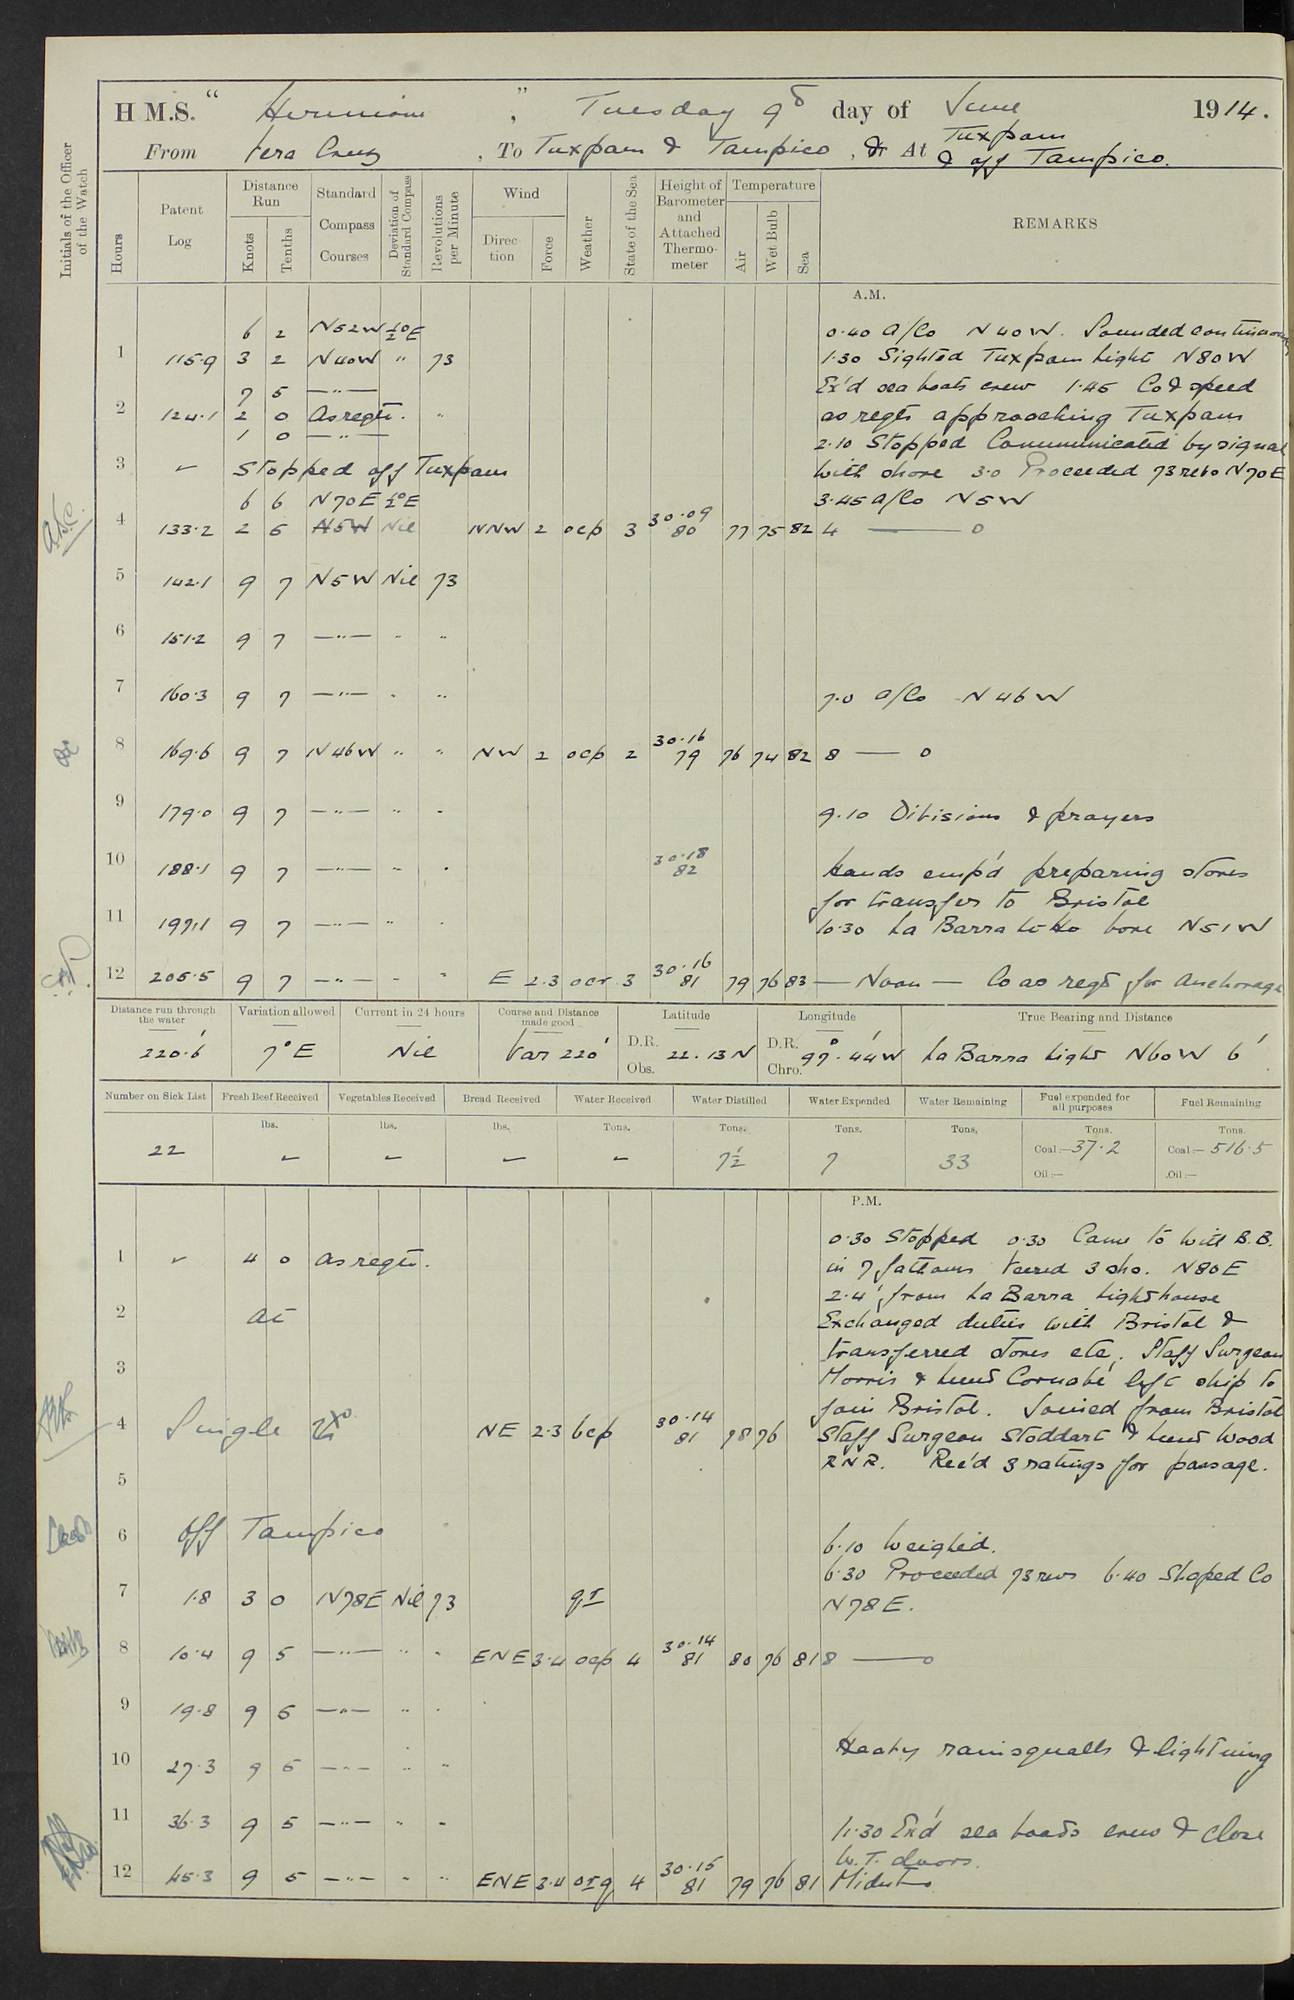 H.M.S. " Hermione ", Tuesday 9th day of June 1914.
From Vera Cruz, To Tuxpam & Tampico, & At Tuxpam & off Tampico.
Initials of the Officer of the Watch
Hours
Patent Log
Distance Run
Knots
Tenths
Standard Compass Courses
Deviation of Standard Compass
Revolutions per Minute
Wind
Direction
Force
Weather
State of the Sea
Height of Barometer and Attached Thermometer
Temperature
Air
Wet Bulb
Sea
REMARKS
A.M.
6 2 N52W ½°E 0.40 A/Co N40W. Sounded continuously
1 115.9 3 2 N40W " 73 1.30 Sighted Tuxpam Light N80W
7 5 —"— Ex'd sea boats crew 1.45 Co & speed
2 124.1 2 0 As reqte. " as reqte approaching Tuxpam
1 0 —"— 2.10 Stopped Communicated by signal
3 ✓ Stopped off Tuxpam with shore 3.0 Proceeded 73 revs N70E
6 6 N70E ½°E 3.45 A/Co N5W
4 133.2 2 5 N5W Nil NNW 2 ocp 3 30.09 80 77 75 82 4 —— 0
5 142.1 9 7 N5W Nil 73
6 151.2 9 7 —"— " "
7 160.3 9 7 —"— " " 7.0 A/Co N46W
8 169.6 9 7 N46W " " NW 2 ocp 2 30.16 79 76 74 82 8 — 0
9 179.0 9 7 —"— " " 9.10 Divisions & prayers
10 188.1 9 7 —"— " " 30.18 82 Hands emp'd preparing stores
for transfer to Bristol
11 197.1 9 7 —"— " " 10.30 La Barra Lt Ho bore N51W
12 205.5 9 7 —"— " " E 2.3 ocr 3 30.16 81 79 76 83 — Noon — Co as reqd for anchorage
Distance run through the water
Variation allowed
Current in 24 hours
Course and Distance made good
Latitude
Longitude
True Bearing and Distance
220.6'
7°E
Nil
Var 220'
D.R. 22.13N
Obs.
D.R. 97°.44'W
Chro.
La Barra Light N60W 6'
Number on Sick List
Fresh Beef Received
Vegetables Received
Bread Received
Water Received
Water Distilled
Water Expended
Water Remaining
Fuel expended for all purposes
Fuel Remaining
lbs. lbs. lbs. Tons. Tons. Tons. Tons. Tons. Tons.
22 ✓ ✓ ✓ ✓ 7½ 7 33 Coal:—37.2 Coal:—516.5
Oil:— Oil:—
P.M.
0.30 Stopped 0.30 Came to with B.B.
1 ✓ 4 0 as reqte. in 7 fathoms Veered 3 shs. N80E
2.4' from La Barra Lighthouse
2 At Exchanged duties with Bristol &
transferred stores etc. Staff Surgeon
3 Morris & Lieut Cornabé left ship to
join Bristol. Joined from Bristol
4 Single NE 2.3 bcp 30.14 81 78 76 Staff Surgeon Stoddart & Lieut Wood
RNR. Rec'd 3 ratings for passage.
5
6 Off Tampico 6.10 Weighed.
6.30 Proceeded 73 revs 6.40 Shaped Co
7 1.8 3 0 N78E Nil 73 N78E.
8 10.4 9 5 —"— " " ENE 3.4 ocp 4 30.14 81 80 76 81 8 —— 0
9 19.8 9 5 —"— " "
10 27.3 9 5 —"— " " Heavy rainsqualls & lightning
11 36.3 9 5 —"— " " 11.30 Ex'd sea boats crew & close
W.T. doors.
12 45.3 9 5 —"— " " ENE 3.4 orq 4 30.15 81 79 76 81 Midnt